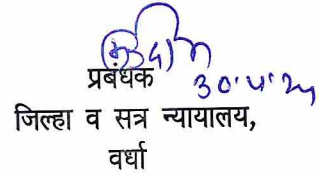 प्रबंधक
जिल्हा व सत्र न्यायालय,
वर्धा